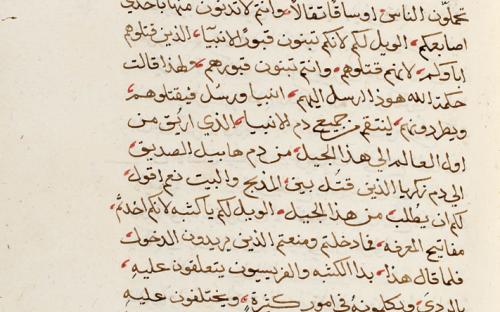 تحملون الناس اوساقًا ثقالًا وانتم لا تدنون منها باحدى
اصابعكم الويل لكم لانكم تبنون قبور الانبيآ الذين قتلوهم
اباوكم لانهم قتلوهم وانتم تبنون قبورهم ولهذا قالت
حكمة الله هوذا ارسل اليهم انبيا ورسل فيقتلوهم
ويطردونهم لينتقم من جميع دم الانبيا الذي اريق من
اول العالم الي هذا الجيل من دم هابيل الصديق
الي دم زكريا الذين قتل بين المذبح والبيت نعم اقول
لكم ان يُطلب من هذا الجيل الويل لكم يا كتبه لانكم اخذتم
مفاتيح المعرفه فما دخلتم ومنعتم الذين يريدون الدخول
فلما قال هذا بدا الكتبه والفريسيون يتعلقون عليه
بالردي ويكلمونه في امور كثرةٍ ويختلفون عليه